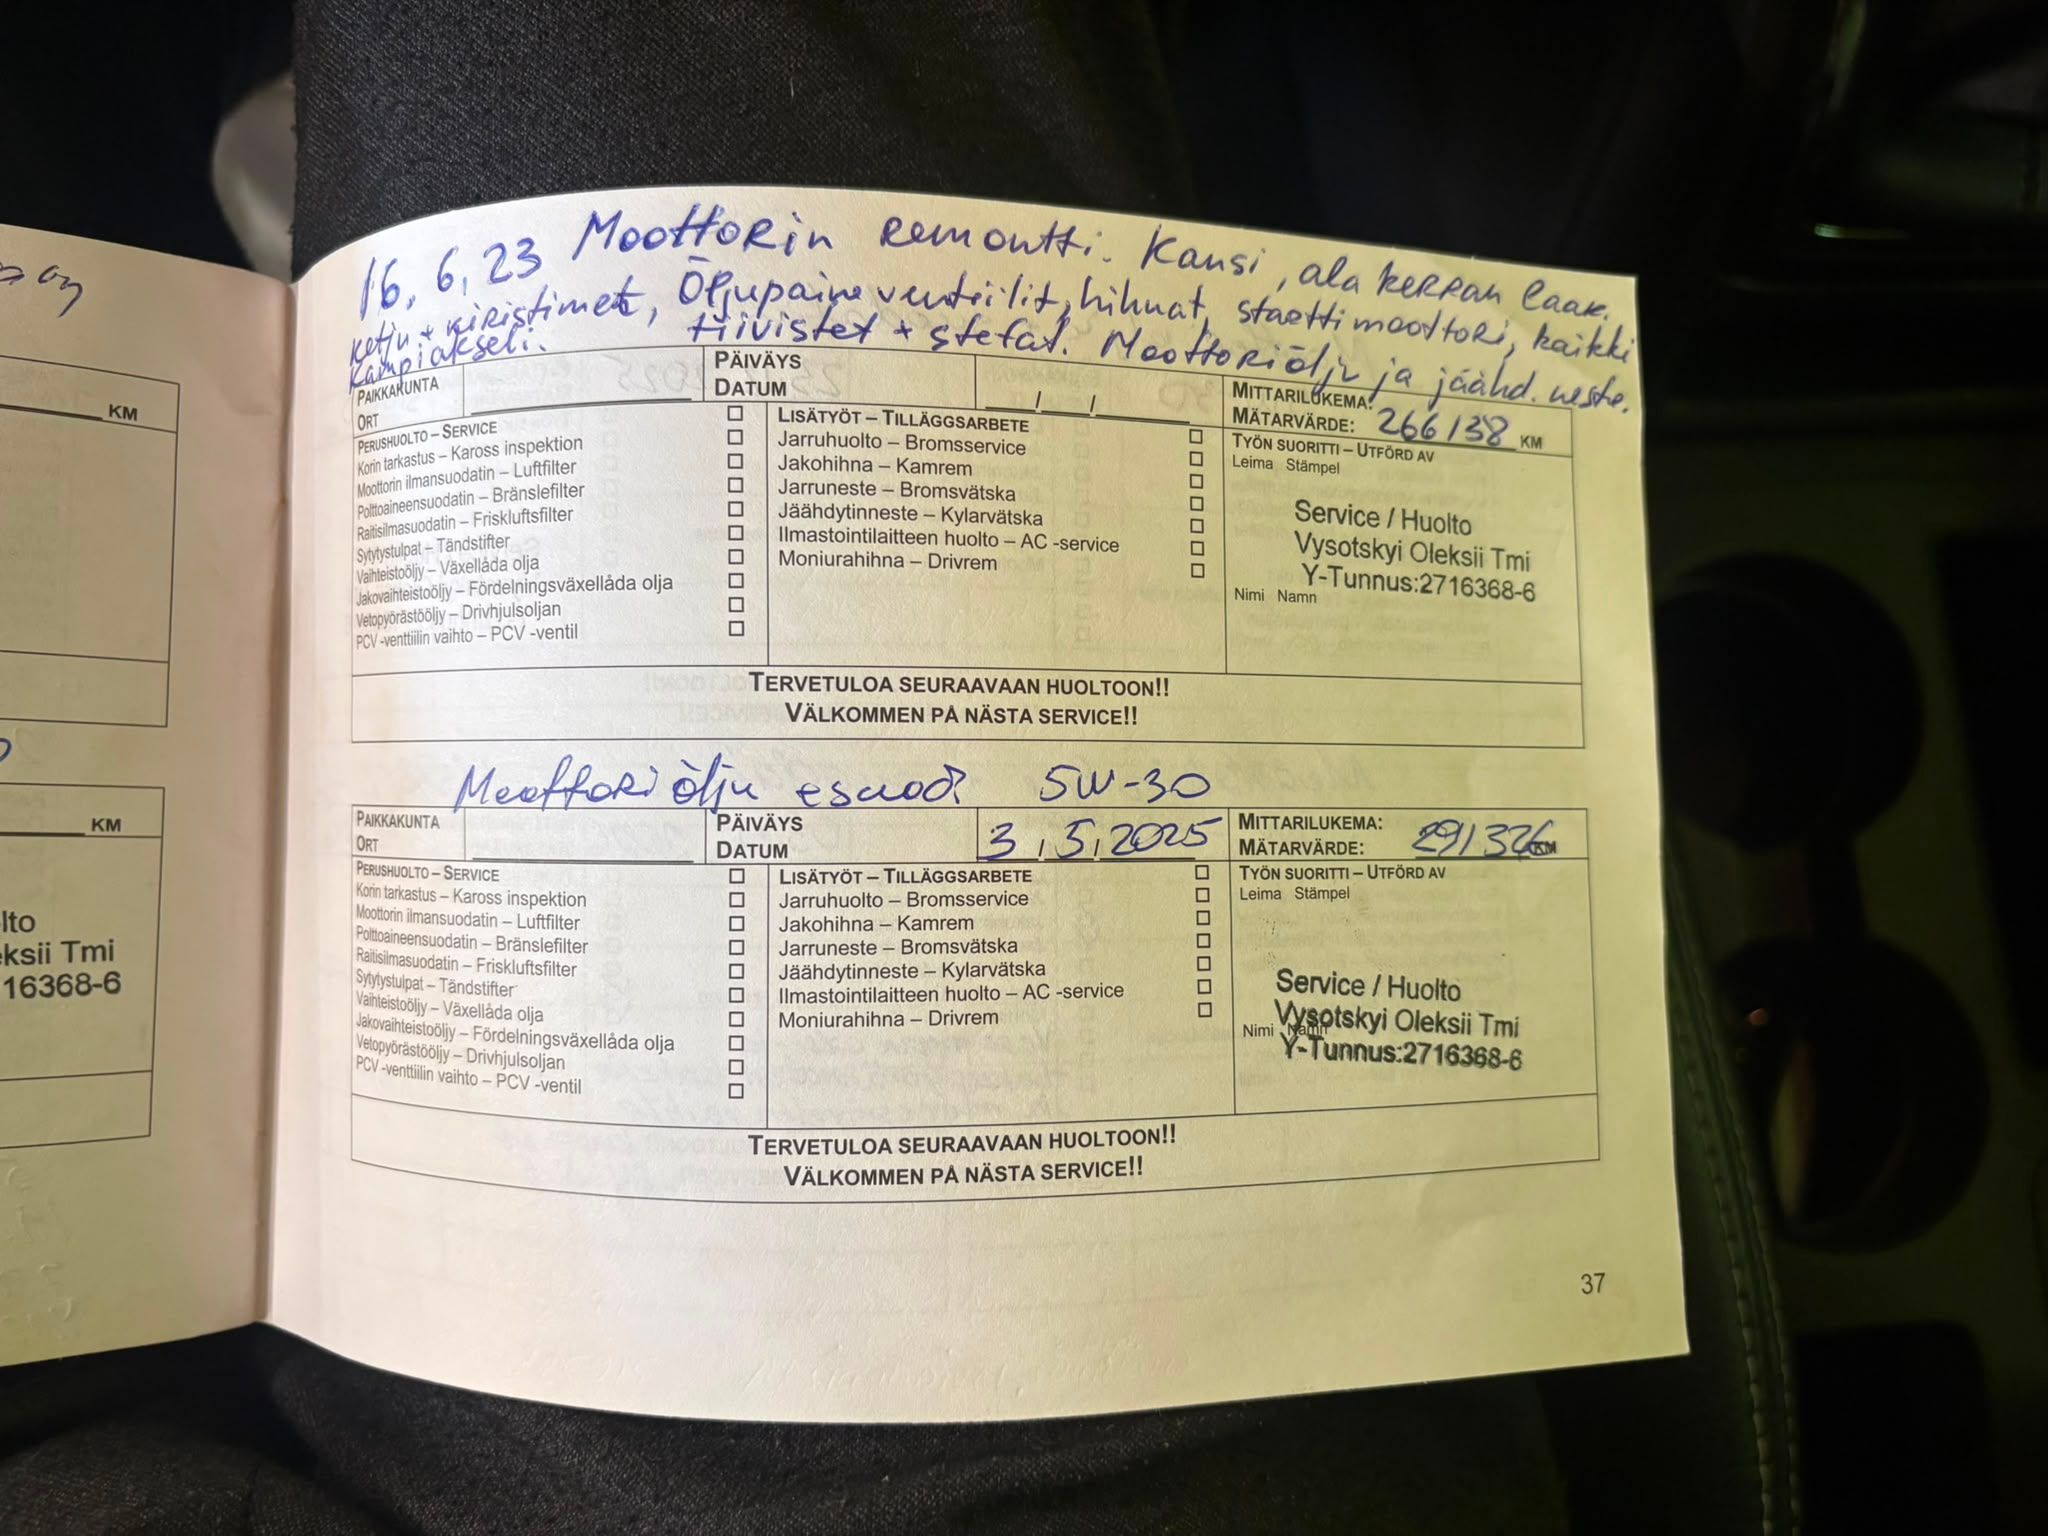 16, 6, 23 Moottorin remontti. Kansi, ala kerran laak.
ketju + kiristimet, Öljupaine venteilit, hihnat, starttimoottori, kaikki
kampiakseli. tiivistet + stefat. Moottoriölju ja jäähd. neste.
PAIKKAKUNTA
ORT
PÄIVÄYS
DATUM
/ /
MITTARILUKEMA:
MÄTARVÄRDE: 266138 KM
PERUSHUOLTO – SERVICE
Korin tarkastus – Kaross inspektion
Moottorin ilmansuodatin – Luftfilter
Polttoaineensuodatin – Bränslefilter
Raitisilmasuodatin – Friskluftsfilter
Sytytystulpat – Tändstifter
Vaihteistoöljy – Växellåda olja
Jakovaihteistoöljy – Fördelningsväxellåda olja
Vetopyörästööljy – Drivhjulsoljan
PCV -venttiilin vaihto – PCV -ventil
LISÄTYÖT – TILLÄGGSARBETE
Jarruhuolto – Bromsservice
Jakohihna – Kamrem
Jarruneste – Bromsvätska
Jäähdytinneste – Kylarvätska
Ilmastointilaitteen huolto – AC -service
Moniurahihna – Drivrem
TYÖN SUORITTI – UTFÖRD AV
Leima Stämpel
Service / Huolto
Vysotskyi Oleksii Tmi
Y-Tunnus:2716368-6
Nimi Namn
TERVETULOA SEURAAVAAN HUOLTOON!!
VÄLKOMMEN PÅ NÄSTA SERVICE!!
Moottori ölju 5W-30
PAIKKAKUNTA
ORT
PÄIVÄYS
DATUM
3, 5, 2025
MITTARILUKEMA:
MÄTARVÄRDE: 291326 KM
PERUSHUOLTO – SERVICE
Korin tarkastus – Kaross inspektion
Moottorin ilmansuodatin – Luftfilter
Polttoaineensuodatin – Bränslefilter
Raitisilmasuodatin – Friskluftsfilter
Sytytystulpat – Tändstifter
Vaihteistoöljy – Växellåda olja
Jakovaihteistoöljy – Fördelningsväxellåda olja
Vetopyörästööljy – Drivhjulsoljan
PCV -venttiilin vaihto – PCV -ventil
LISÄTYÖT – TILLÄGGSARBETE
Jarruhuolto – Bromsservice
Jakohihna – Kamrem
Jarruneste – Bromsvätska
Jäähdytinneste – Kylarvätska
Ilmastointilaitteen huolto – AC -service
Moniurahihna – Drivrem
TYÖN SUORITTI – UTFÖRD AV
Leima Stämpel
Service / Huolto
Vysotskyi Oleksii Tmi
Nimi Namn
Y-Tunnus:2716368-6
TERVETULOA SEURAAVAAN HUOLTOON!!
VÄLKOMMEN PÅ NÄSTA SERVICE!!
37
KM
KM
lto
eksii Tmi
16368-6